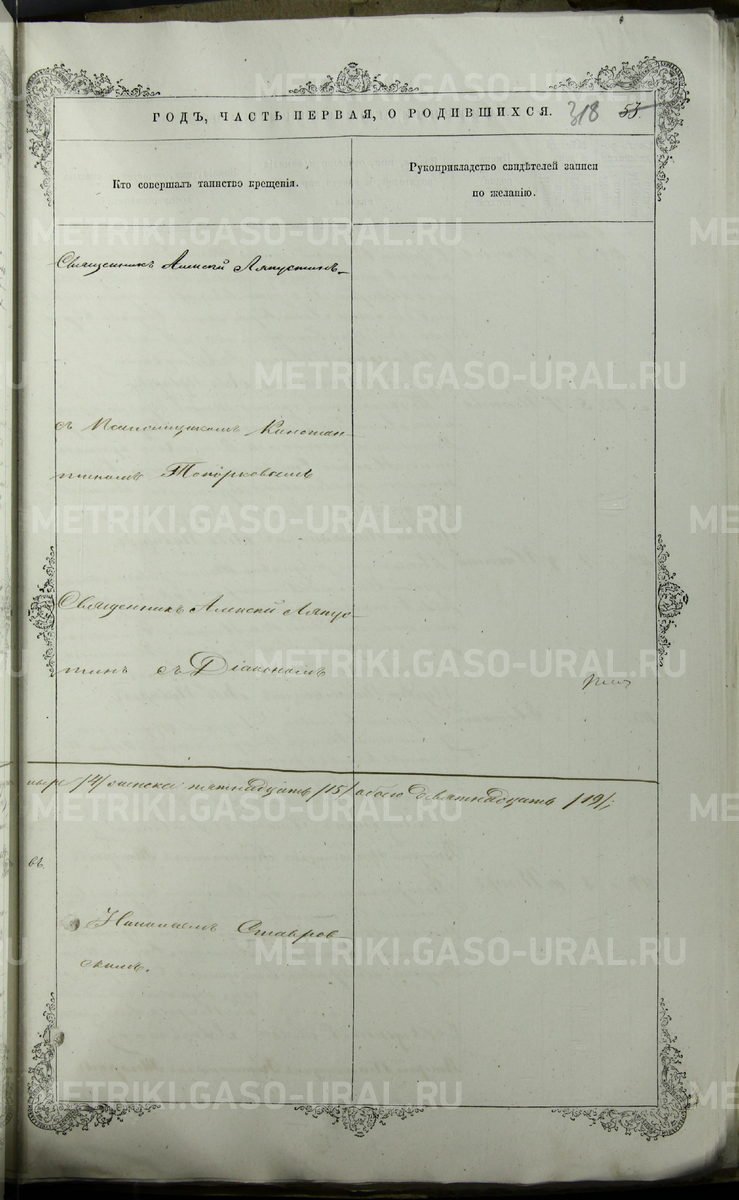 ГОДЪ, ЧАСТЬ ПЕРВАЯ, О РОДИВШИХСЯ. 318 53
Кто совершалъ таинство крещенія.
Рукоприкладство свидѣтелей записи
по желанію.
Священникъ Алексій Ляпустинъ
съ Псаломщикомъ Констан-
тиномъ Топорковымъ
Священникъ Алексій Ляпус-
тинъ съ Діакономъ
/4/ женска пятнадцать /15/ обоего девятнадцать /19/;
въ
Николаемъ Ставров-
скимъ.
METRIKI.GASO-URAL.RU